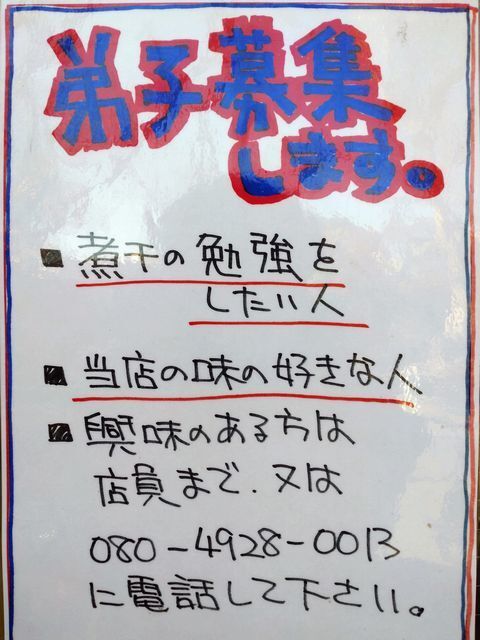 弟子募集
します。
■煮干の勉強を
したい人
■当店の味の好きな人
■興味のある方は
店員まで.又は
080-4928-0013
に電話して下さい。